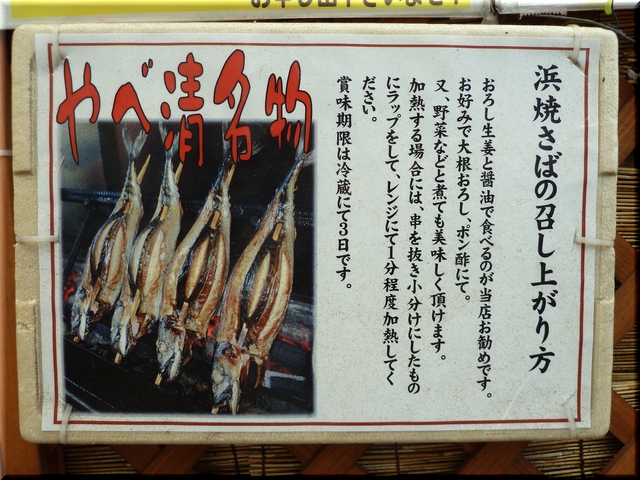 浜焼さばの召し上がり方
おろし生姜と醤油で食べるのが当店お勧めです。
お好みで大根おろし、ポン酢にて。
又、野菜などと煮ても美味しく頂けます。
加熱する場合には、串を抜き小分けにしたもの
にラップをして、レンジにて1分程度加熱してく
ださい。
賞味期限は冷蔵にて3日です。
やべ清名物